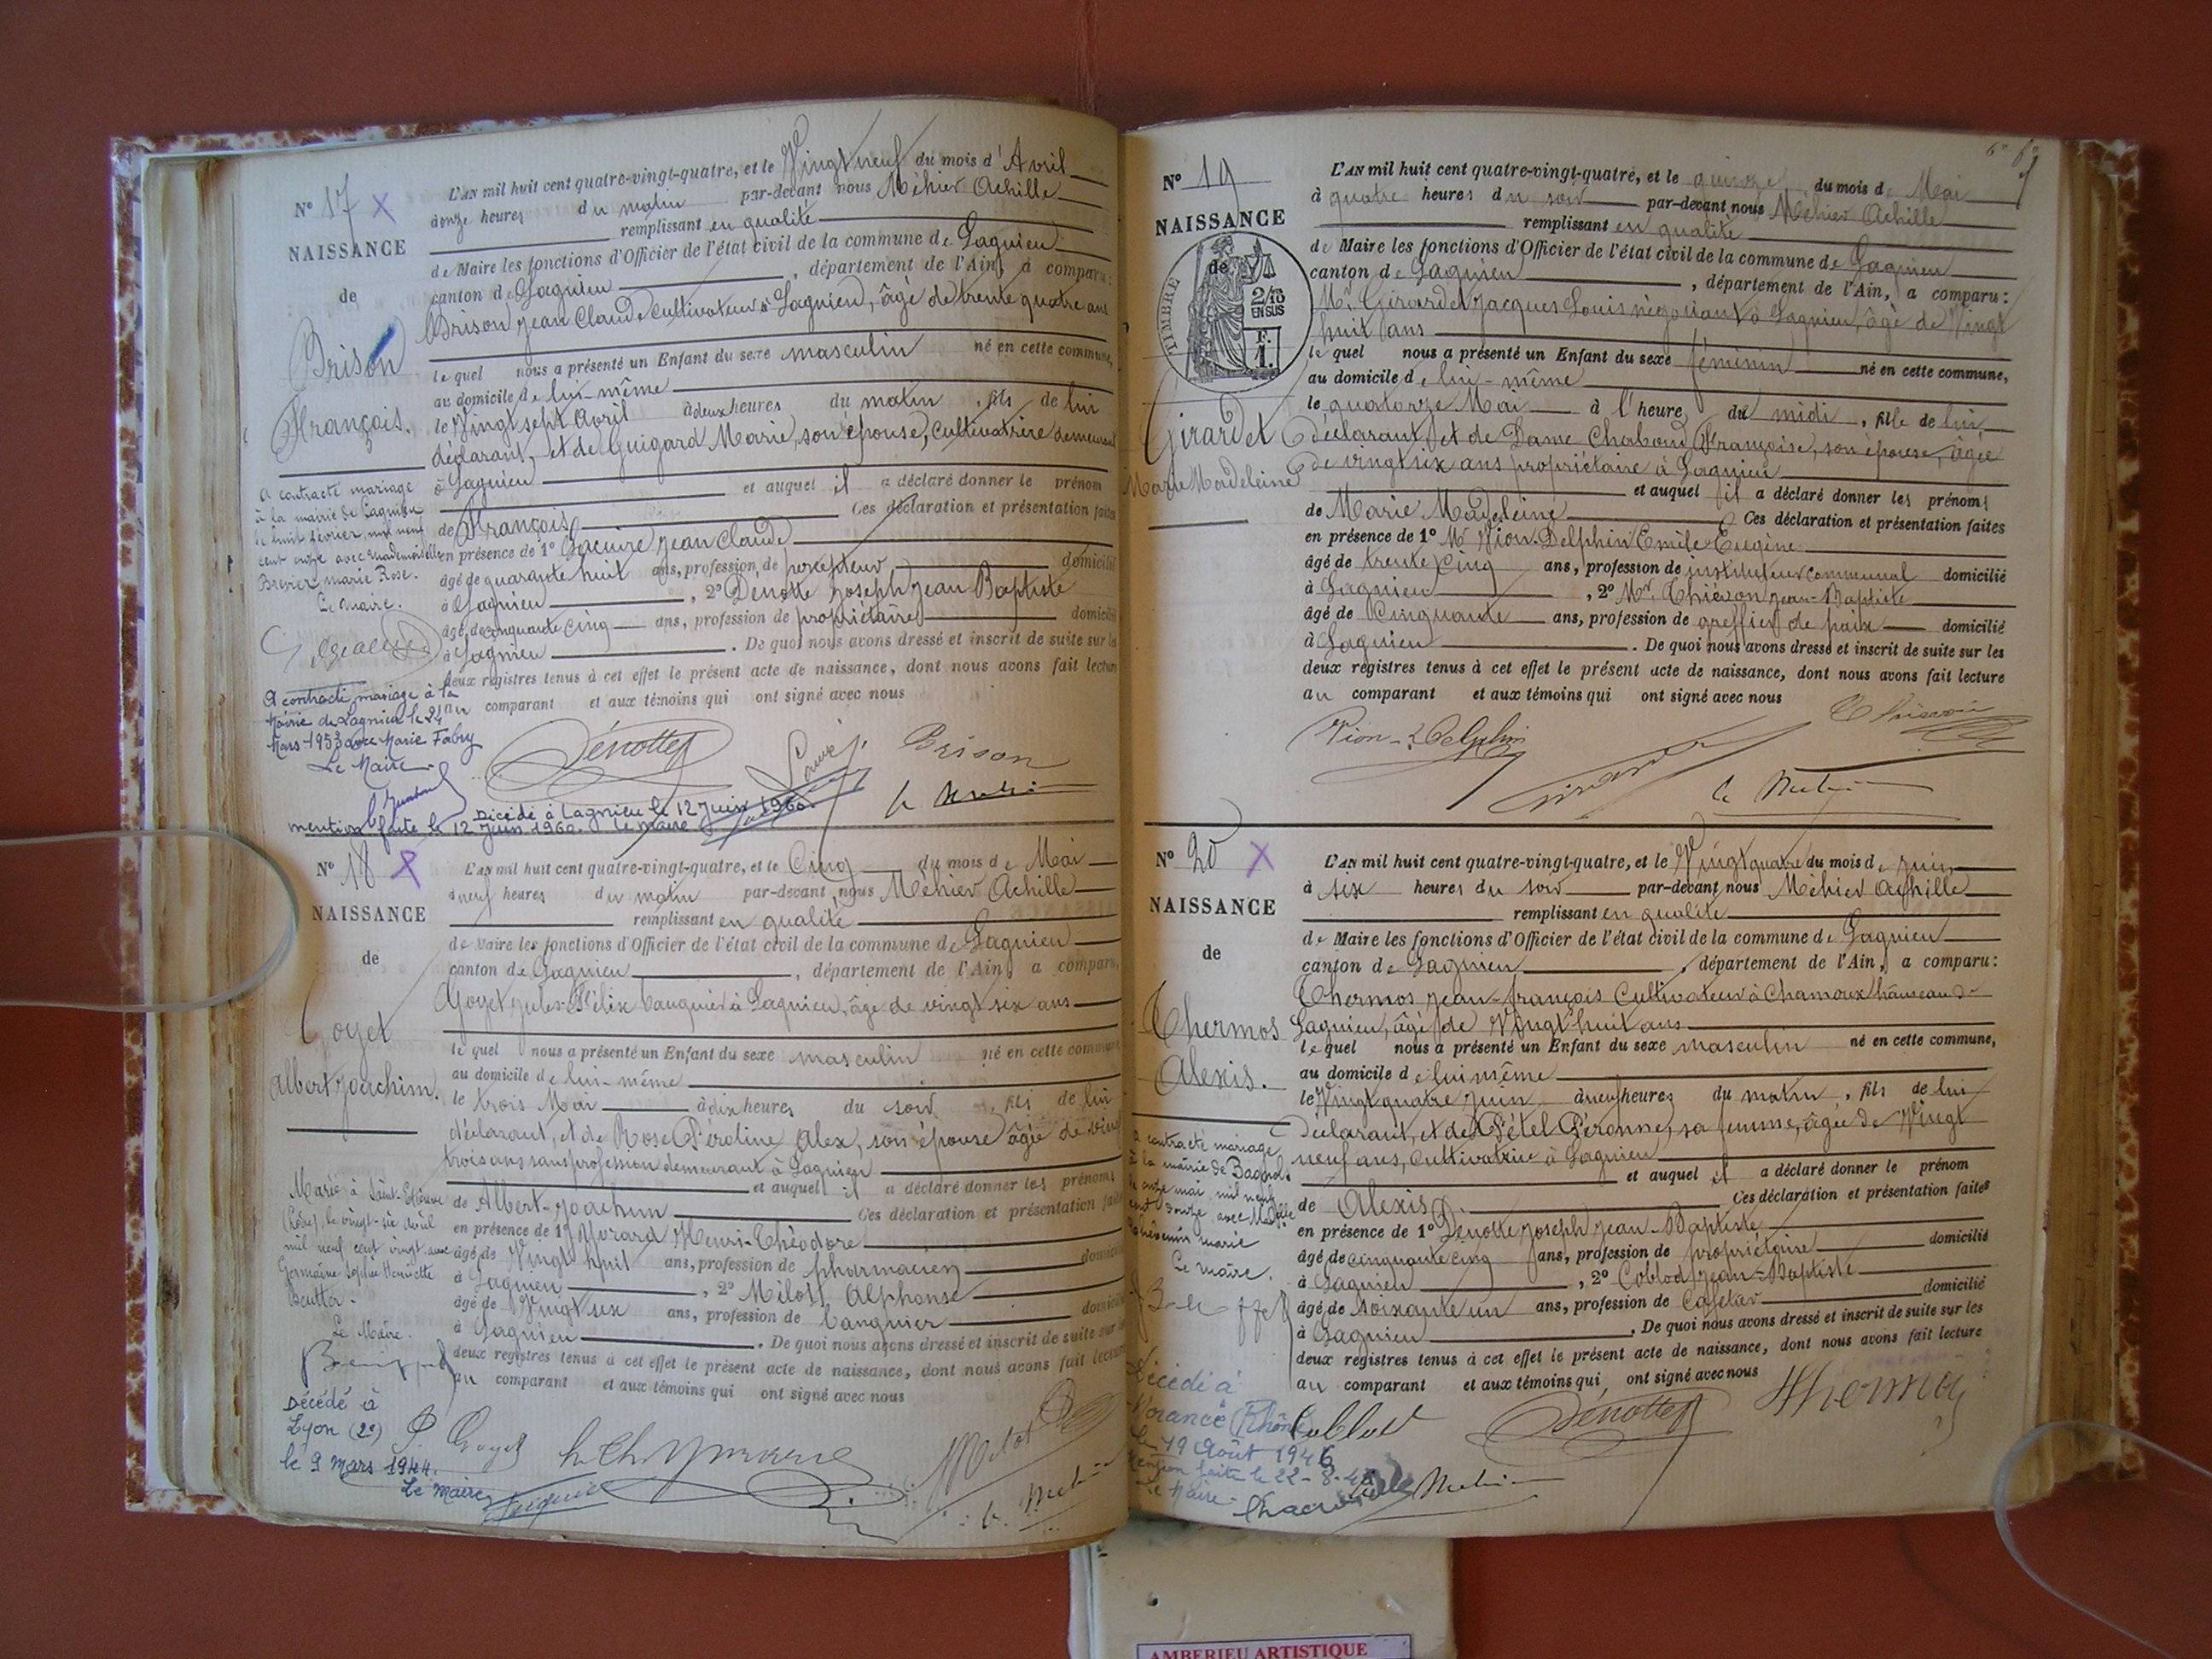 N° 17 X
NAISSANCE
de
Brison
François.
L'AN mil huit cent quatre-vingt-quatre, et le Vingt neuf du mois d'Avril
à onze heures du matin par-devant nous Méhier Achille
remplissant en qualité
de Maire les fonctions d'Officier de l'état civil de la commune de Lagnieu
canton de Lagnieu, département de l'Ain, a comparu:
Brison Jean Claude Cultivateur à Lagnieu, âgé de trente quatre ans
le quel nous a présenté un Enfant du sexe masculin né en cette commune,
au domicile de lui-même
le Vingt sept Avril à deux heures du matin, fils de lui
déclarant, et de Guigard Marie, son épouse, Cultivatrice demeurant
à Lagnieu
et auquel il a déclaré donner le prénom
de François Ces déclaration et présentation faites
en présence de 1° Jean Claude
âgé de quarante huit ans, profession de percepteur domicilié
à Lagnieu, 2° Dénotte Joseph Jean Baptiste
âgé de cinquante cinq ans, profession de propriétaire domicilié
à Lagnieu. De quoi nous avons dressé et inscrit de suite sur les
deux registres tenus à cet effet le présent acte de naissance, dont nous avons fait lecture
au comparant et aux témoins qui ont signé avec nous
A contracté mariage
à la mairie de Lagnieu
le huit février mil neuf
cent onze avec mademoiselle
Brevier marie Rose.
Le Maire.
A contracté mariage à la
Mairie de Lagnieu le 24
Mars 1953 avec Marie Fabry
Le Maire
Dénotte Brison
Décédé à Lagnieu le 12 Juin 1960.
mention faite le 12 Juin 1960. Le maire
N° 18 X
NAISSANCE
de
Goyet
Albert Joachim.
L'AN mil huit cent quatre-vingt-quatre, et le Cinq du mois de Mai
à neuf heures du matin par-devant nous Méhier Achille
remplissant en qualité
de Maire les fonctions d'Officier de l'état civil de la commune de Lagnieu
canton de Lagnieu, département de l'Ain, a comparu,
Goyet Jules-Félix banquier à Lagnieu, âgé de vingt six ans
le quel nous a présenté un Enfant du sexe masculin né en cette commune
au domicile de lui-même
le trois Mai à dix heures du soir, fils de lui
déclarant, et de Rose Péroline Alex, son épouse âgée de vingt
trois ans sans profession demeurant à Lagnieu
et auquel il a déclaré donner les prénoms
de Albert-Joachim Ces déclaration et présentation faites
en présence de 1° Morard Henri-Théodore
âgé de Vingt huit ans, profession de pharmacien domicilié
à Lagnieu, 2° Milott Alphonse
âgé de Vingt six ans, profession de banquier domicilié
à Lagnieu. De quoi nous avons dressé et inscrit de suite sur les
deux registres tenus à cet effet le présent acte de naissance, dont nous avons fait lecture
au comparant et aux témoins qui ont signé avec nous
Marié à Saint-Etienne
(Loire) le vingt-six avril
mil neuf cent vingt
Germaine Sophie Henriette
Beutter.
Le Maire.
Décédé à
Lyon (2e)
le 9 mars 1944.
Le Maire
Goyet Milot
N° 19
NAISSANCE
de
TIMBRE
2/10
EN SUS
F.
1.
Girardet
Marie Madeleine
L'AN mil huit cent quatre-vingt-quatre, et le quinze du mois de Mai
à quatre heures du soir par-devant nous Méhier Achille
remplissant en qualité
de Maire les fonctions d'Officier de l'état civil de la commune de Lagnieu
canton de Lagnieu, département de l'Ain, a comparu:
Mr Girardet Jacques Louis négociant à Lagnieu, âgé de Vingt
huit ans
le quel nous a présenté un Enfant du sexe féminin né en cette commune,
au domicile de lui-même
le quatorze Mai à l'heure de midi, fille de lui
déclarant, et de Dame Chaboud Françoise, son épouse, âgée
de vingt six ans propriétaire à Lagnieu
et auquel il a déclaré donner les prénoms
de Marie Madeleine Ces déclaration et présentation faites
en présence de 1° Mr Vion-Delphin Emile Eugène
âgé de trente cinq ans, profession de instituteur communal domicilié
à Lagnieu, 2° Mr. Jean-Baptiste
âgé de Cinquante ans, profession de greffier de paix domicilié
à Lagnieu. De quoi nous avons dressé et inscrit de suite sur les
deux registres tenus à cet effet le présent acte de naissance, dont nous avons fait lecture
au comparant et aux témoins qui ont signé avec nous
Vion-Delphin
N° 20 X
NAISSANCE
de
Thermos
Alexis.
L'AN mil huit cent quatre-vingt-quatre, et le Vingt quatre du mois de Juin
à six heures du soir par-devant nous Méhier Achille
remplissant en qualité
de Maire les fonctions d'Officier de l'état civil de la commune de Lagnieu
canton de Lagnieu, département de l'Ain, a comparu:
Thermos Jean-François Cultivateur à Chamoux hameau de
Lagnieu, âgé de Vingt huit ans
le quel nous a présenté un Enfant du sexe masculin né en cette commune,
au domicile de lui même
le Vingt quatre Juin à neuf heures du matin, fils de lui
déclarant, et de Pétel Péronne, sa femme, âgée de Vingt
neuf ans, Cultivatrice à Lagnieu
et auquel il a déclaré donner le prénom
de Alexis Ces déclaration et présentation faites
en présence de 1° Dénotte Joseph Jean-Baptiste
âgé de cinquante cinq ans, profession de propriétaire domicilié
à Lagnieu, 2° Coblod Jean-Baptiste
âgé de soixante un ans, profession de Cafetier domicilié
à Lagnieu. De quoi nous avons dressé et inscrit de suite sur les
deux registres tenus à cet effet le présent acte de naissance, dont nous avons fait lecture
au comparant et aux témoins qui ont signé avec nous
a contracté mariage
à la mairie de Bagnols
le onze mai mil neuf
cent douze avec Mlle
marie
Le Maire.
Décédé à
Morancé (Rhône)
le 19 Août 1946
Mention faite le 22-8-46
Le Maire
Dénotte Thermos
AMBERIEU ARTISTIQUE